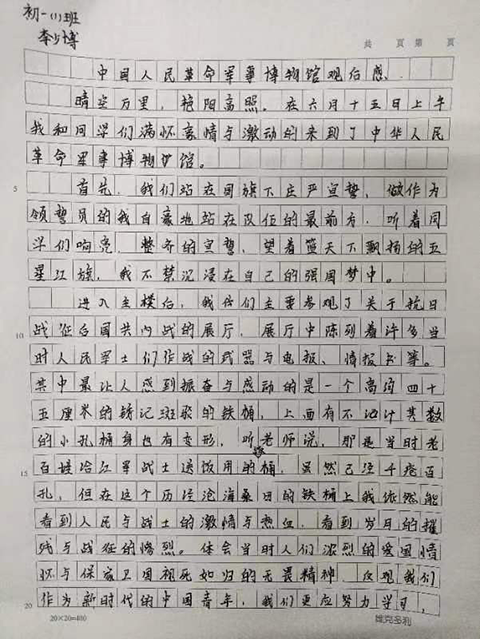 初一(1)班
李少博
共 页 第 页
中国人民革命军事博物馆观后感
晴空万里，艳阳高照。在六月十五日上午
我和同学们满怀豪情与激动的来到了中华人民
革命军事博物馆。
5 首先，我们站在国旗下庄严宣誓，做作为
领誓员的我自豪地站在队伍的最前方，听着同
学们响亮 整齐的宣誓，望着蓝天下飘扬的五
星红旗，我不禁沉浸在自己的强国梦中。
进入主楼后，我们主要参观了关于抗日
10 战征与国共内战的展厅，展厅中陈列着许多当
时人民军士们作战的武器与电报、情报卡等。
其中最让人感到振奋与感动的是一个高约四十
五厘米的锈记斑驳的铁桶，上面有不计其数
的小孔桶身也有变形，听老师说，那是当时老
15 百姓给红军战士送饭用的桶，虽然已经千疮百
孔，但在这个历经沧海桑日的铁桶上我依然能
看到人民与战士的激情与热血，看到岁月的摧
残与战征的惨烈。体会当时人们浓烈的爱国情
怀与保家卫国视死如归的无畏精神 反观我们
20 作为新时代的中国青年，我们更应努力学习，
20×20=400
雄克多利